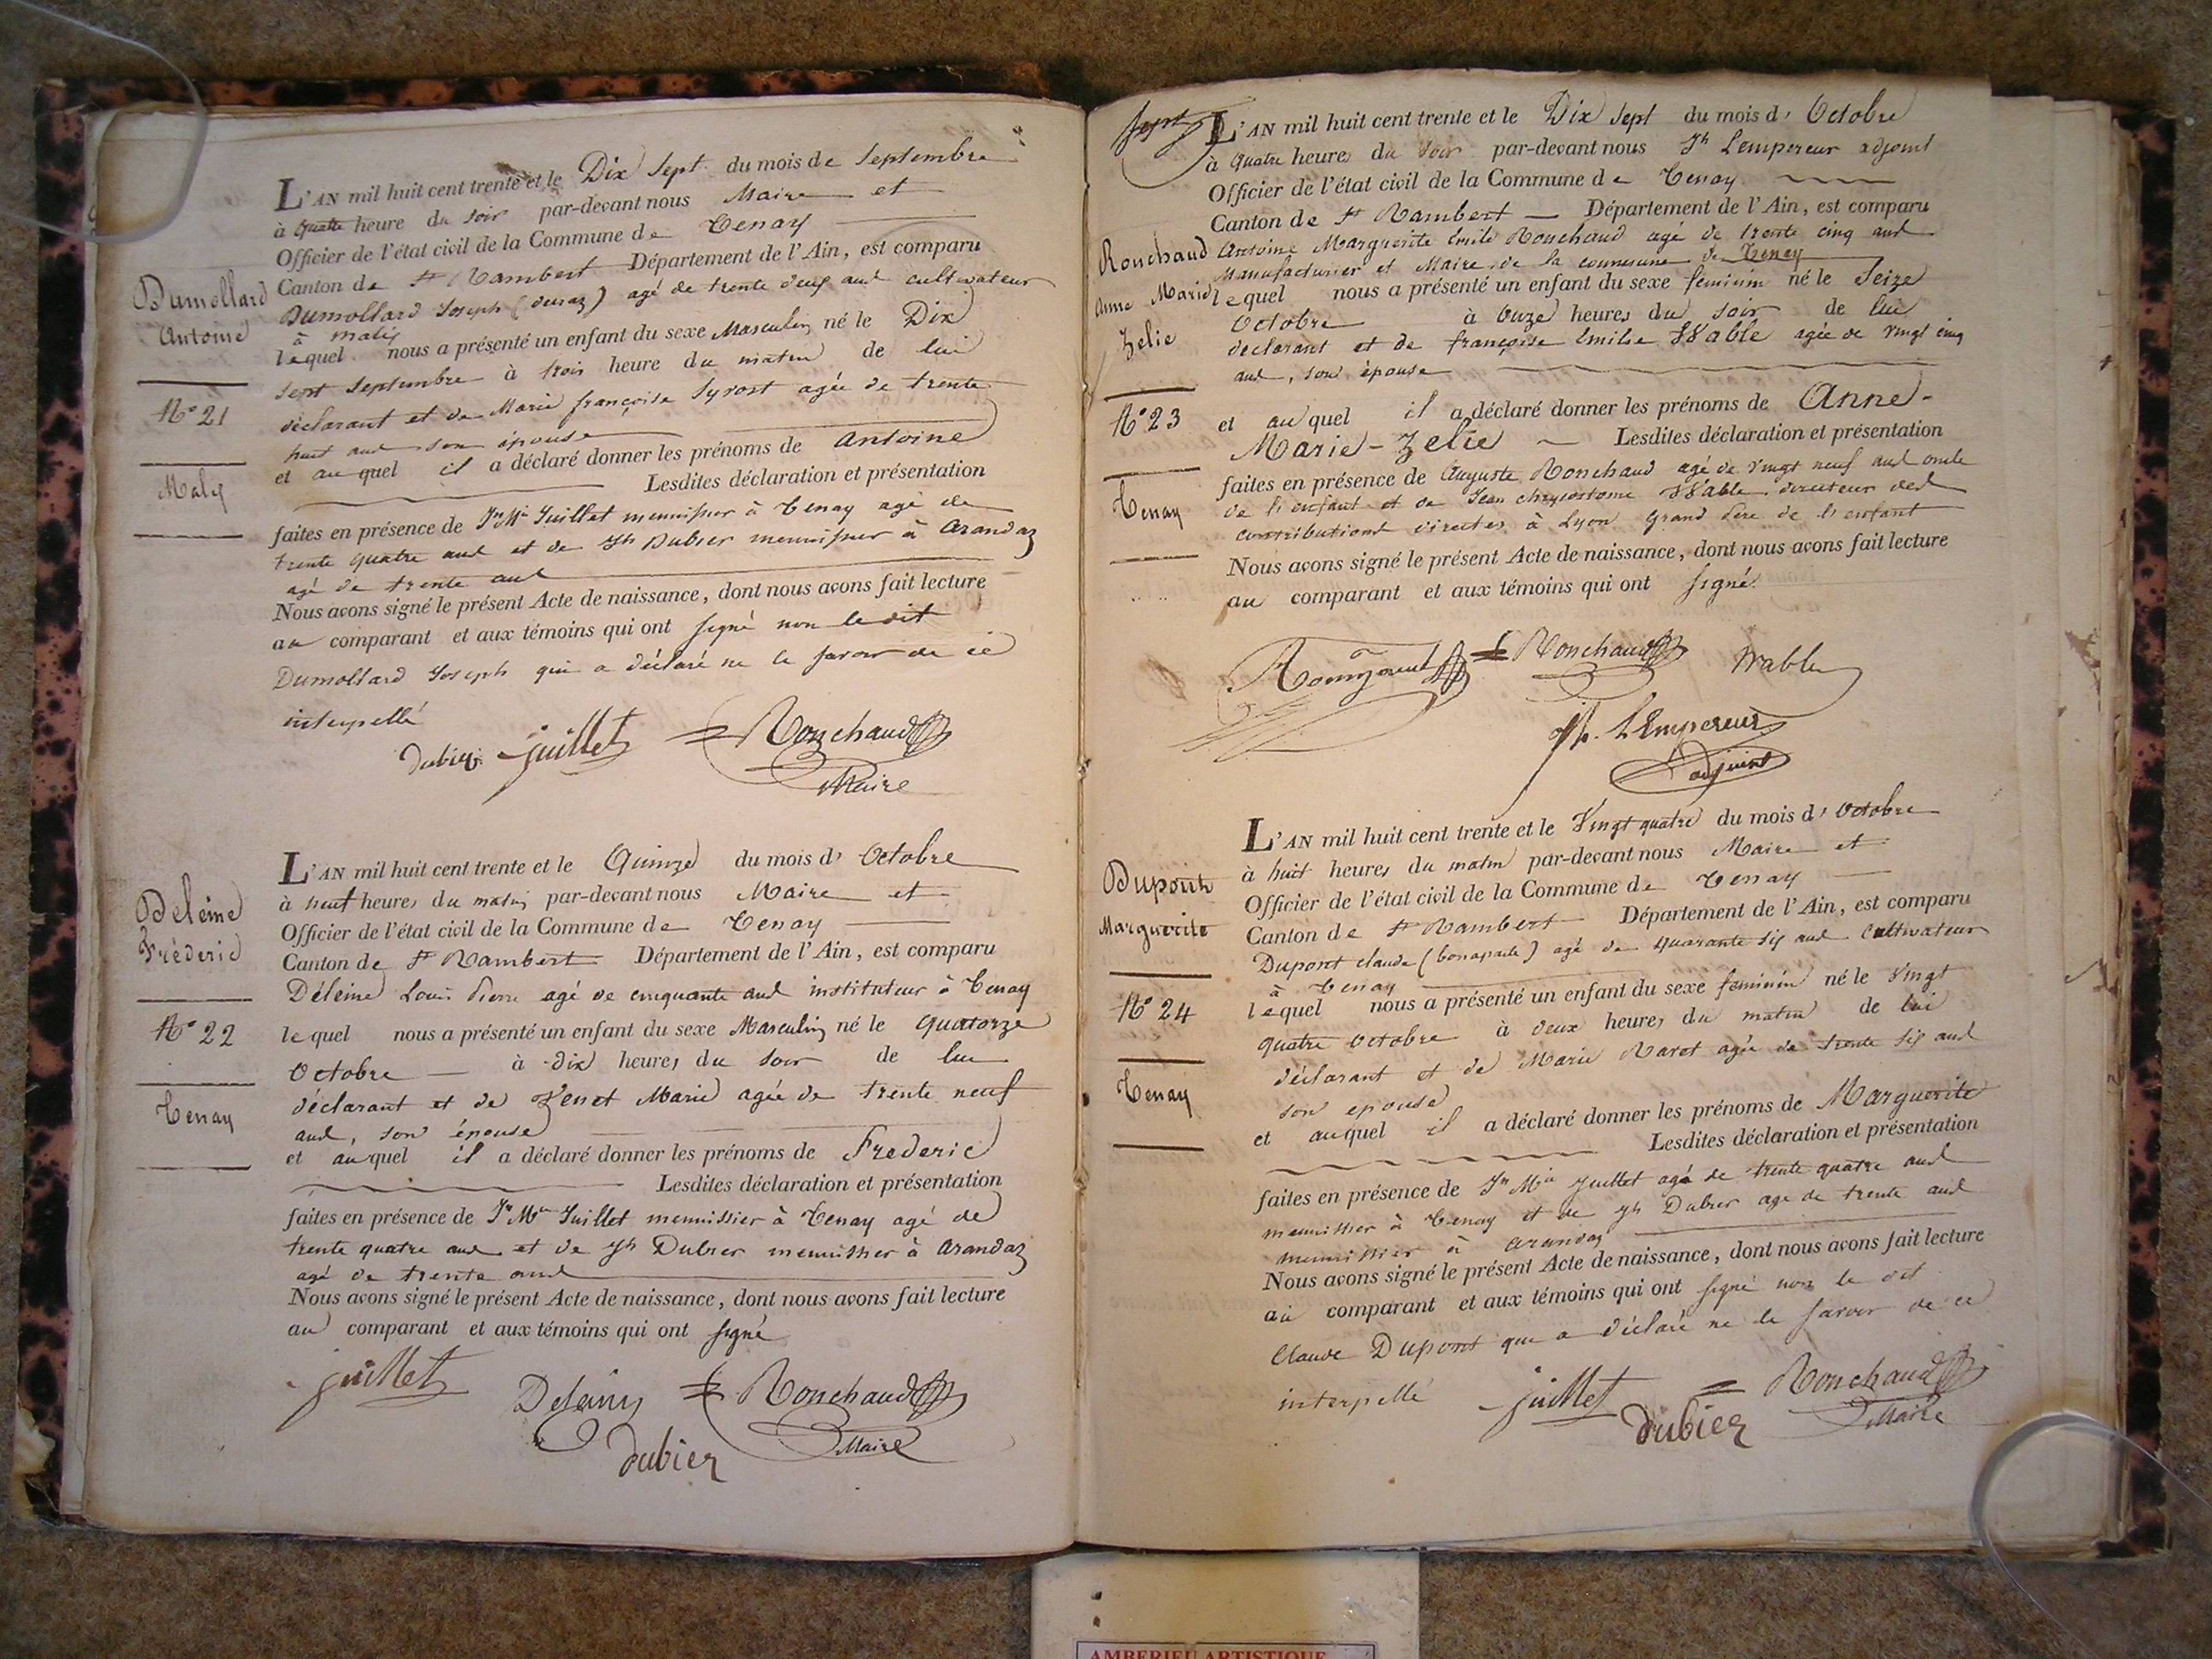 L'AN mil huit cent trente et le Dix Sept du mois de Septembre
à quatre heure du soir par-devant nous Maire et
Officier de l'état civil de la Commune de Tenay
Canton de St Rambert Département de l'Ain, est comparu
Dumollard Joseph agé de trente deux ans cultivateur
à malix
lequel nous a présenté un enfant du sexe Masculin né le Dix
Sept Septembre à trois heure du matin de lui
déclarant et de Marie françoise Syrost agée de trente
huit ans son épouse
et auquel il a déclaré donner les prénoms de Antoine
Lesdites déclaration et présentation
faites en présence de Jn Mie Juillet menuisier à Tenay agé de
trente quatre ans et de Jh Dubier menuisier à Arandaz
agé de trente ans
Nous avons signé le présent Acte de naissance, dont nous avons fait lecture
au comparant et aux témoins qui ont signé non le dit
Dumollard Joseph qui a déclaré ne le savoir de ce
interpellé
dubier juillet Ronchaud
Maire
Dumollard
Antoine
N° 21
Malix
L'AN mil huit cent trente et le Quinze du mois d' Octobre
à neuf heures du matin par-devant nous Maire et
Officier de l'état civil de la Commune de Tenay
Canton de St Rambert Département de l'Ain, est comparu
Déleine Louis Pierre agé de cinquante ans instituteur à Tenay
lequel nous a présenté un enfant du sexe Masculin né le Quatorze
Octobre à dix heures du soir de lui
déclarant et de Zenet Marie agée de trente neuf
ans, son épouse
et auquel il a déclaré donner les prénoms de Frederic
Lesdites déclaration et présentation
faites en présence de Jn Mie Juillet menuissier à Tenay agé de
trente quatre ans et de Jh Dubier menuissier à Arandaz
agé de trente ans
Nous avons signé le présent Acte de naissance, dont nous avons fait lecture
au comparant et aux témoins qui ont signé
juillet Deleine Ronchaud
dubier Maire
Deleine
Fréderic
N° 22
Tenay
sept
L'AN mil huit cent trente et le Dix Sept du mois d' Octobre
à quatre heures du soir par-devant nous Jh Lempereur adjoint
Officier de l'état civil de la Commune de Tenay
Canton de St Rambert Département de l'Ain, est comparu
Antoine Marguerite Emile Ronchaud agé de trente cinq ans
Manufacturier et Maire de la commune de Tenay
lequel nous a présenté un enfant du sexe feminin né le Seize
Octobre à onze heures du soir de lui
déclarant et de françoise Emilie Wable agée de vingt cinq
ans, son épouse
et auquel il a déclaré donner les prénoms de Anne-
Marie-Zelie Lesdites déclaration et présentation
faites en présence de Auguste Ronchaud agé de vingt neuf ans oncle
de l'enfant et de Jean chrysostome Wable directeur des
contributions directes à Lyon grand Père de l'enfant
Nous avons signé le présent Acte de naissance, dont nous avons fait lecture
au comparant et aux témoins qui ont signé
Ronchaud Wable
Jh. LEmpereur
adjoint
Ronchaud
Anne Marie
Zelie
N° 23
Tenay
L'AN mil huit cent trente et le Vingt quatre du mois d' Octobre
à huit heures du matin par-devant nous Maire et
Officier de l'état civil de la Commune de Tenay
Canton de St Rambert Département de l'Ain, est comparu
Dupont claude (bonaparte) agé de quarante six ans cultivateur
à Tenay
lequel nous a présenté un enfant du sexe feminin né le Vingt
quatre Octobre à deux heures du matin de lui
déclarant et de Marie Ravet agée de trente six ans
son épouse
et auquel il a déclaré donner les prénoms de Marguerite
Lesdites déclaration et présentation
faites en présence de Jn Mie Juillet agé de trente quatre ans
menuissier à Tenay et de Jh Dubier age de trente ans
menuissier à arandaz
Nous avons signé le présent Acte de naissance, dont nous avons fait lecture
au comparant et aux témoins qui ont signé non le dit
Claude Dupont qui a déclaré ne le savoir de ce
interpellé juillet dubier Ronchaud
Maire
Dupont
Marguerite
N° 24
Tenay
AMBERIEU ARTISTIQUE